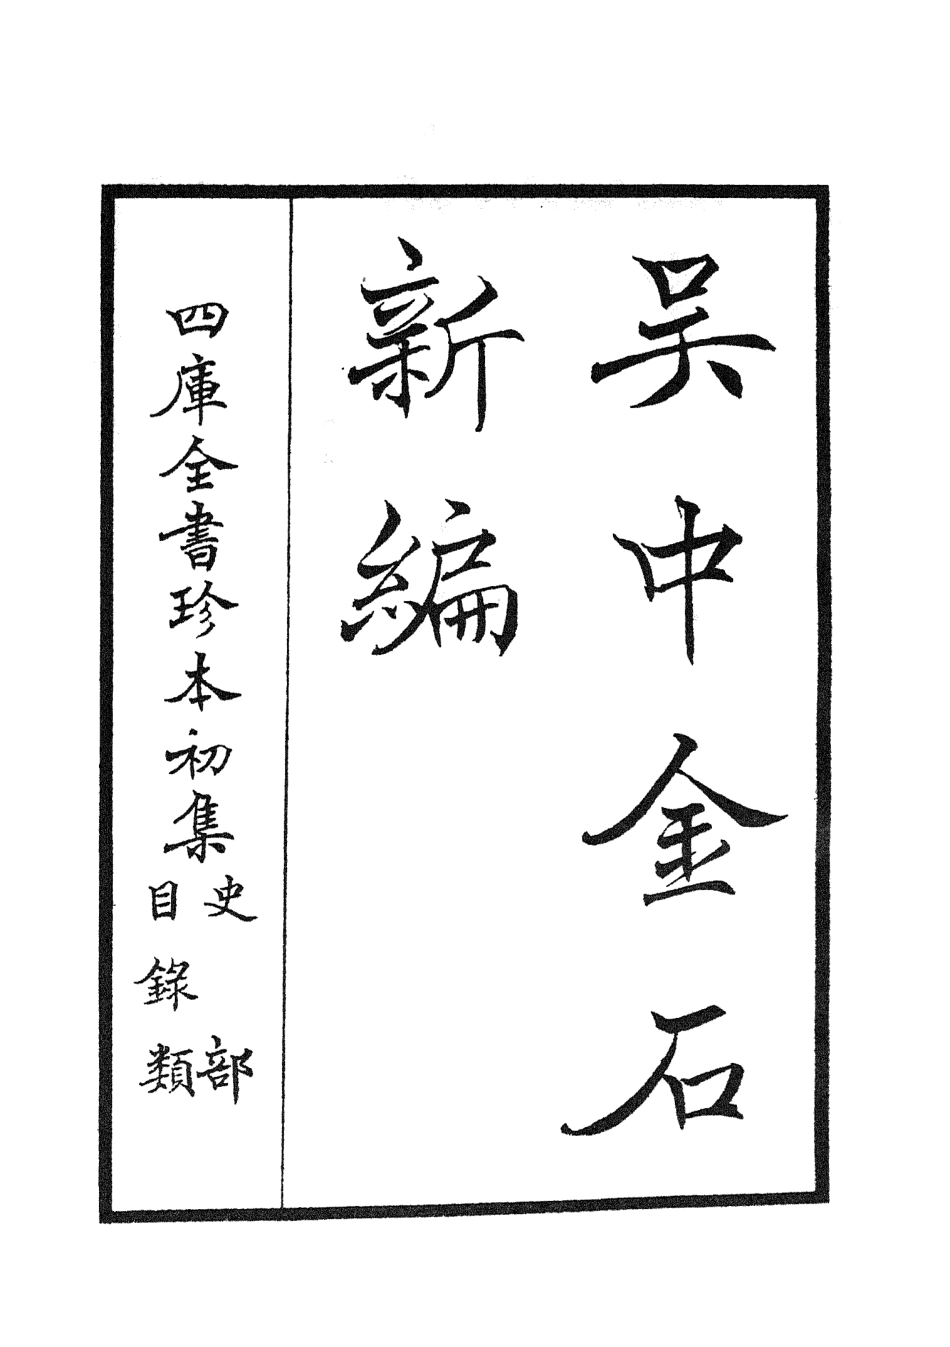 吴中金石
新編
四庫全書珍本初集
史部
目錄類